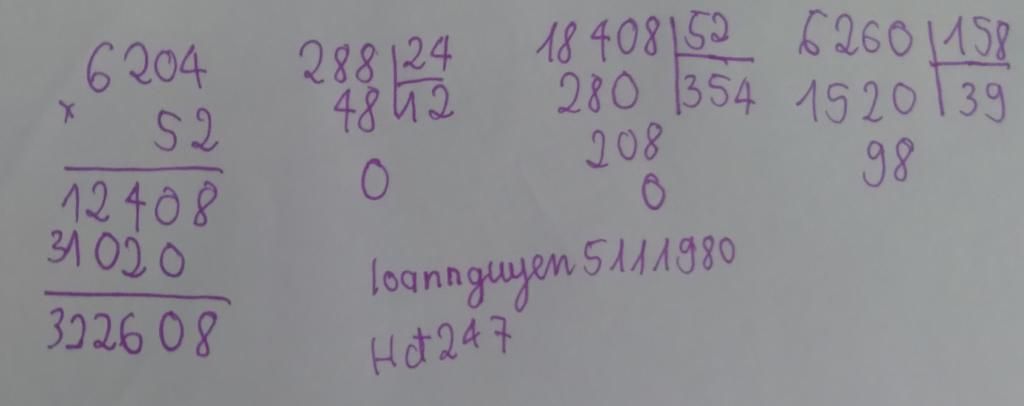 6204
x 52
12408
31020
322608
288 24
48 12
0
18408 52
280 354
208
0
6260 158
1520 39
98
loannguyen5111980
Hđ247